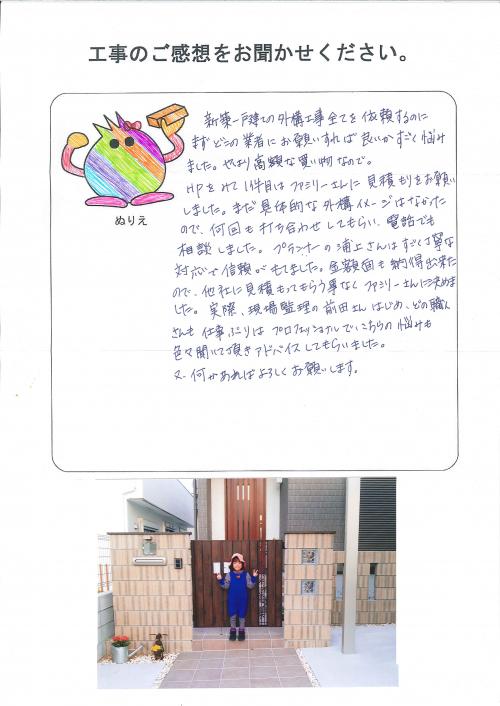 工事のご感想をお聞かせください。
新築一戸建ての外構工事全てを依頼するのに
まずどこの業者にお願いすれば良いかすごく悩み
ました。やはり高額な買い物なので。
HPを見て1件目はファミリーさんに見積もりをお願い
しました。まだ具体的な外構イメージはなかった
ので、何回も打ち合わせしてもらい、電話でも
相談しました。プランナーの浦上さんはすごく丁寧な
対応で信頼がもてました。金額面も納得出来た
ので、他社に見積もってもらう事なくファミリーさんに決めま
した。実際、現場監理の前田さんはじめ、どの職人
さんも仕事ぶりはプロフェッショナルで、こちらの悩みも
色々聞いて頂きアドバイスしてもらいました。
又、何かあればよろしくお願いします。
ぬりえ